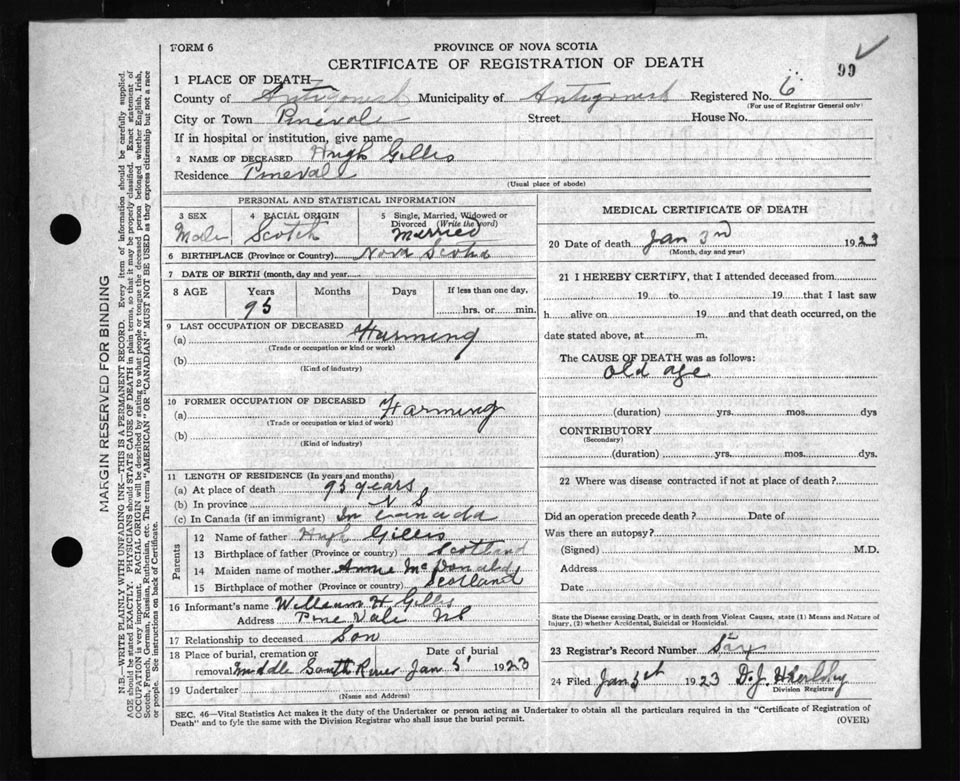 FORM 6
PROVINCE OF NOVA SCOTIA
CERTIFICATE OF REGISTRATION OF DEATH
99
1 PLACE OF DEATH
County of Antigonish Municipality of Antigonish Registered No. 6
(For use of Registrar General only)
City or Town Pinevale Street House No.
If in hospital or institution, give name
2 NAME OF DECEASED Hugh Gillis
Residence Pinevale
(Usual place of abode)
PERSONAL AND STATISTICAL INFORMATION
3 SEX 4 RACIAL ORIGIN 5 Single, Married, Widowed or
Divorced (Write the word)
Male Scotch Married
6 BIRTHPLACE (Province or Country) Nova Scotia
7 DATE OF BIRTH (month, day and year)
8 AGE Years Months Days If less than one day,
95 hrs. or min.
9 LAST OCCUPATION OF DECEASED
(a) Farming
(Trade or occupation or kind or work)
(b)
(Kind of industry)
10 FORMER OCCUPATION OF DECEASED
(a) Farming
(Trade or occupation or kind of work)
(b)
(Kind of industry)
11 LENGTH OF RESIDENCE (In years and months)
(a) At place of death 95 years
(b) In province N S
(c) In Canada (if an immigrant) In Canada
Parents
12 Name of father Hugh Gillis
13 Birthplace of father (Province or country) Scotland
14 Maiden name of mother Annie McDonald
15 Birthplace of mother (Province or country) Scotland
16 Informant's name William H Gillis
Address Pine Vale NS
17 Relationship to deceased Son
18 Place of burial, cremation or Date of burial
removal Middle South River Jan 5 1923
19 Undertaker
(Name and Address)
MEDICAL CERTIFICATE OF DEATH
20 Date of death Jan 3rd 1923
(Month, day and year)
21 I HEREBY CERTIFY, that I attended deceased from
19 to 19 that I last saw
h alive on 19 and that death occurred, on the
date stated above, at m.
The CAUSE OF DEATH was as follows:
old age
(duration) yrs. mos. dys
CONTRIBUTORY
(Secondary)
(duration) yrs. mos. dys.
22 Where was disease contracted if not at place of death?
Did an operation precede death? Date of
Was there an autopsy?
(Signed) M.D.
Address
Date
State the Disease causing Death, or in death from Violent Causes, state (1) Means and Nature of
Injury, (2) whether Accidental, Suicidal or Homicidal.
23 Registrar's Record Number Six
24 Filed Jan 1923 D. J.
Division Registrar
SEC. 46—Vital Statistics Act makes it the duty of the Undertaker or person acting as Undertaker to obtain all the particulars required in the "Certificate of Registration of
Death" and to fyle the same with the Division Registrar who shall issue the burial permit.
(OVER)
MARGIN RESERVED FOR BINDING
N.B.—WRITE PLAINLY WITH UNFADING INK—THIS IS A PERMANENT RECORD. Every item of information should be carefully supplied.
AGE should be stated EXACTLY. PHYSICIANS should STATE CAUSE OF DEATH in plain terms, so that it may be properly classified. Exact statement of
OCCUPATION is very important. RACIAL ORIGIN will be described by stating to what people or tongue the deceased person belonged whether English, Irish,
Scotch, French, German, Russian, Ruthenian, etc. The terms "AMERICAN" OR "CANADIAN" MUST NOT BE USED as they express citizenship but not a race
or people. See instructions on back of Certificate.